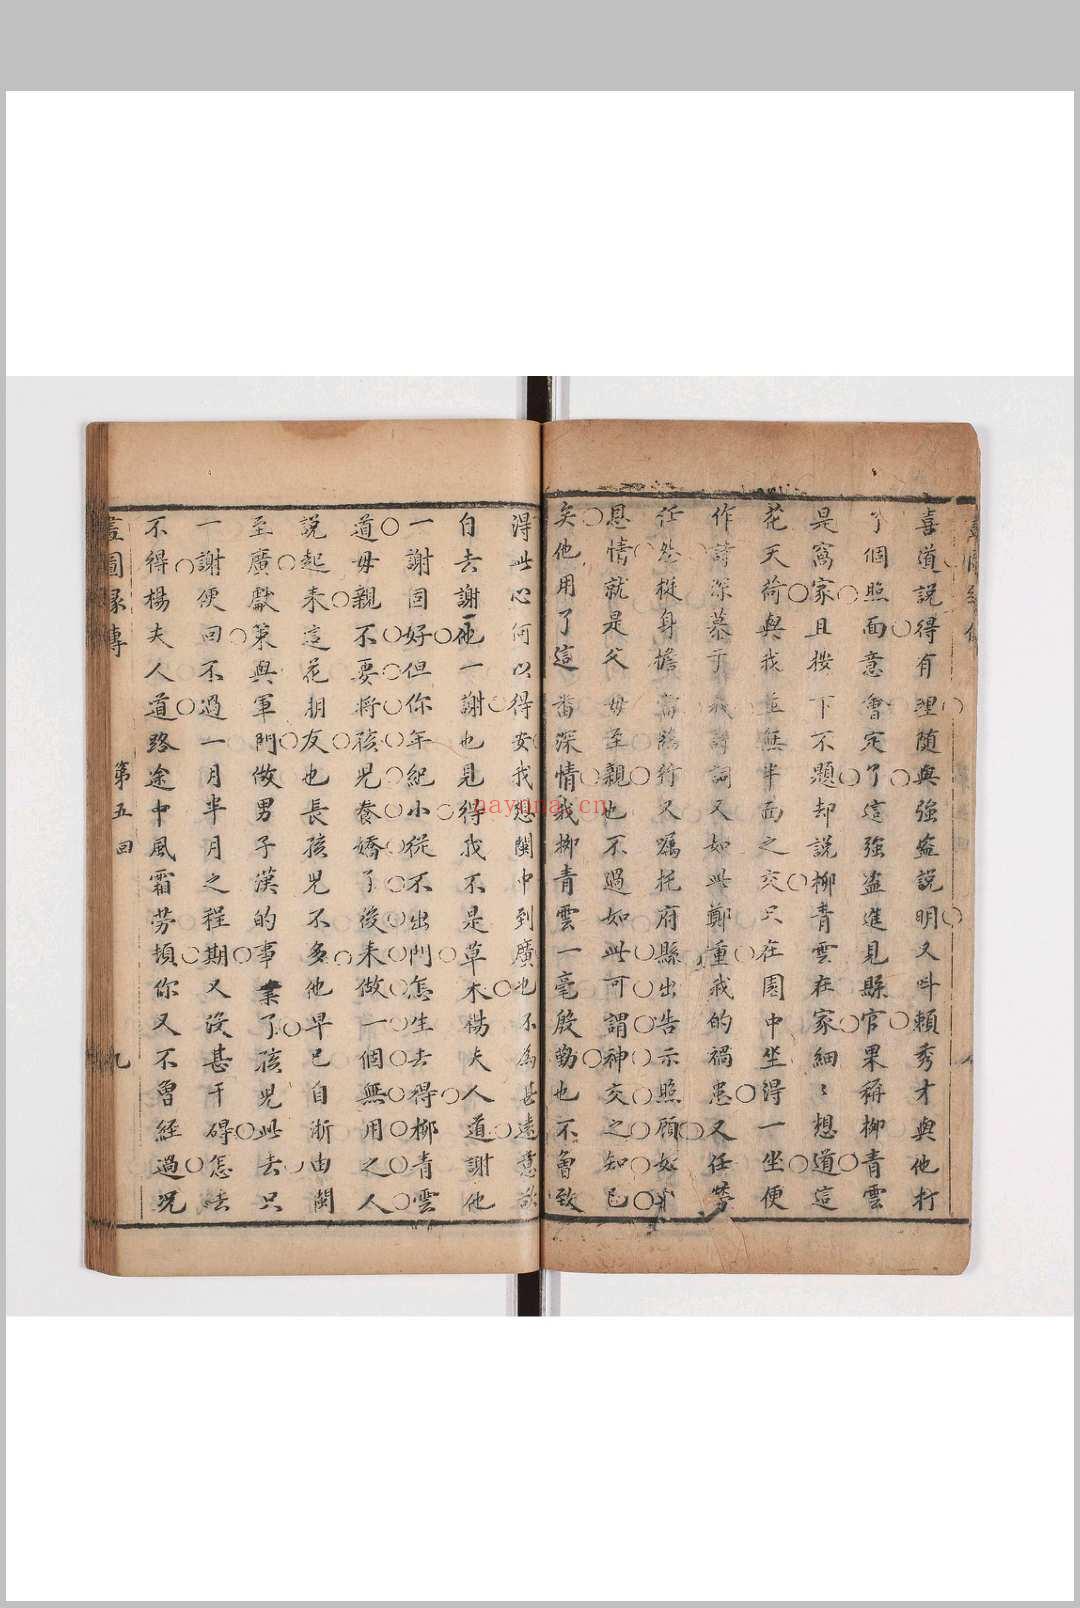 喜道説得有理随與強盗説明又呌賴秀才與他打
了個照面意會定了這強盗進見縣官果稱柳青雲
是窩家且按下不題却説柳青雲在家細〻想道這
花天荷與我並無半面之交只在園中坐得一坐便
作詩深慕于我詩詞又如此鄭重我的禍患又任勞
任怨挺身擔當臨行又囑托府縣出告示照顧如此
恩情就是父母至親也不過如此可謂神交之知己
矣他用了這番深情我柳青雲一毫殷勤也不曾致
得此心何以得安我想閩中到廣也不為甚遠意欲
自去謝他一謝也見得我不是草木楊夫人道謝他
一謝固好但你年紀小從不出門怎生去得柳青雲
道母親不要將孩兒養嬌了後来做一個無用之人
説起来這花朋友也長孩兒不多他早已自浙由閩
至廣獻策與軍門做男子漢的事業了孩兒此去只
一謝便回不過一月半月之程期又沒甚干碍怎去
不得楊夫人道路途中風霜勞頓你又不曾經過况
畫圖緣傳 第五回 九
nayona.cn